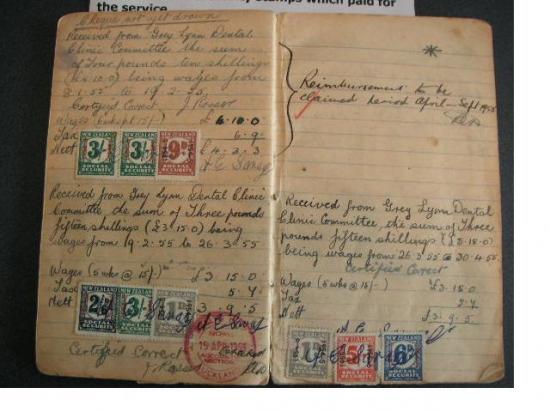 Stamps which paid for
the service
Cheque not yet drawn
Received from Grey Lynn Dental
Clinic Committee the sum
of Four pounds ten shillings
(£4.10.0) being wages from
to 19.2.55
Certified Correct J. Rosser
Wages
£
Tax 6.9
Nett £4.2.3
NEW ZEALAND
3/-
SOCIAL
SECURITY
NEW ZEALAND
3/-
SOCIAL
SECURITY
NEW ZEALAND
9D
SOCIAL
SECURITY
Received from Grey Lynn Dental Clinic
Committee the sum of Three pounds
fifteen shillings (£3.15.0) being
Wages from 19.2.55 to 26.3.55
Wages (5 wks @ 15/-) £3.15.0
Tax 5.7
Nett 3.9.5
NEW ZEALAND
3/-
SOCIAL
SECURITY
SOCIAL
SECURITY
19 APR 1955
AUCKLAND
Certified Correct
*
Reimbursement to be
claimed period April - Sept 1955
Received from Grey Lynn Dental
Clinic Committee, the sum of Three
pounds fifteen shillings (£3.15.0)
being wages from 26.3.55 to 30.4.55
Certified Correct
Wages (5 wks @ 15/-) £3.15.0
Tax 5.7
Nett £3.9.5
SOCIAL
SECURITY
SOCIAL
SECURITY
6D
SOCIAL
SECURITY